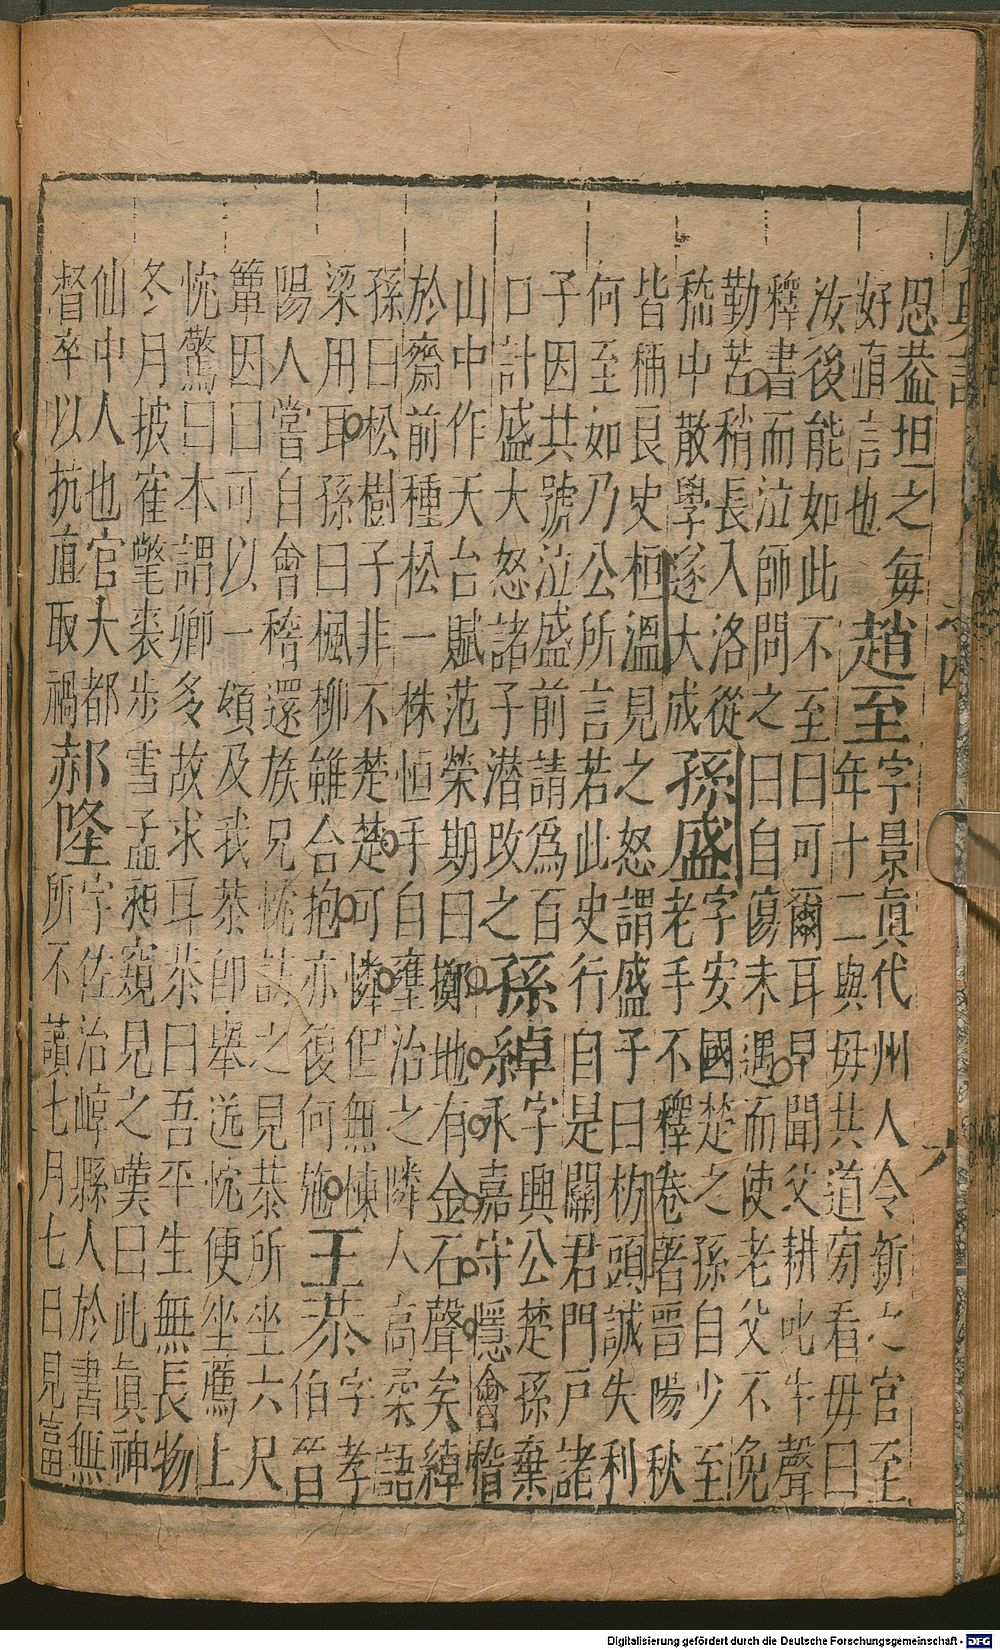 思葢坦之每
好直言也
趙至
字景眞代州人令新之官至
年十二與毋共道旁看毋曰
汝後能如此不至曰可爾耳早聞父耕叱牛聲
釋書而泣師問之曰自傷未遇而使老父不免
勤苦稍長入洛從
嵇中散學遂大成
孫盛
字安國楚之孫自少至
老手不釋卷著晉陽秋
皆稱良史桓溫見之怒謂盛子曰枋頭誠失利
何至如乃公所言若此史行自是關君門戶諸
子因共號泣盛前請爲百
口計盛大怒諸子潜改之
孫綽
字興公楚孫棄
永嘉守隱會稽
山中作天台賦范榮期曰擲地有金石聲矣綽
於齋前種松一株恒手自壅治之隣人高柔語
孫曰松樹子非不楚楚可憐但無棟
梁用耳孫曰楓柳雖合抱亦復何施
王恭
字孝
伯晉
陽人嘗自會稽還族兄忱訪之見恭所坐六尺
簟因曰可以一領及我恭卽舉送忱便坐薦上
忱驚曰本謂卿多故求耳恭曰吾平生無長物
冬月披寉氅裘步雪孟昶窺見之嘆曰此眞神
仙中人也官大都
督卒以抗直取禍
郝隆
字佐治崞縣人於書無
所不讀七月七日見富
Digitalisierung gefördert durch die Deutsche Forschungsgemeinschaft - DFG